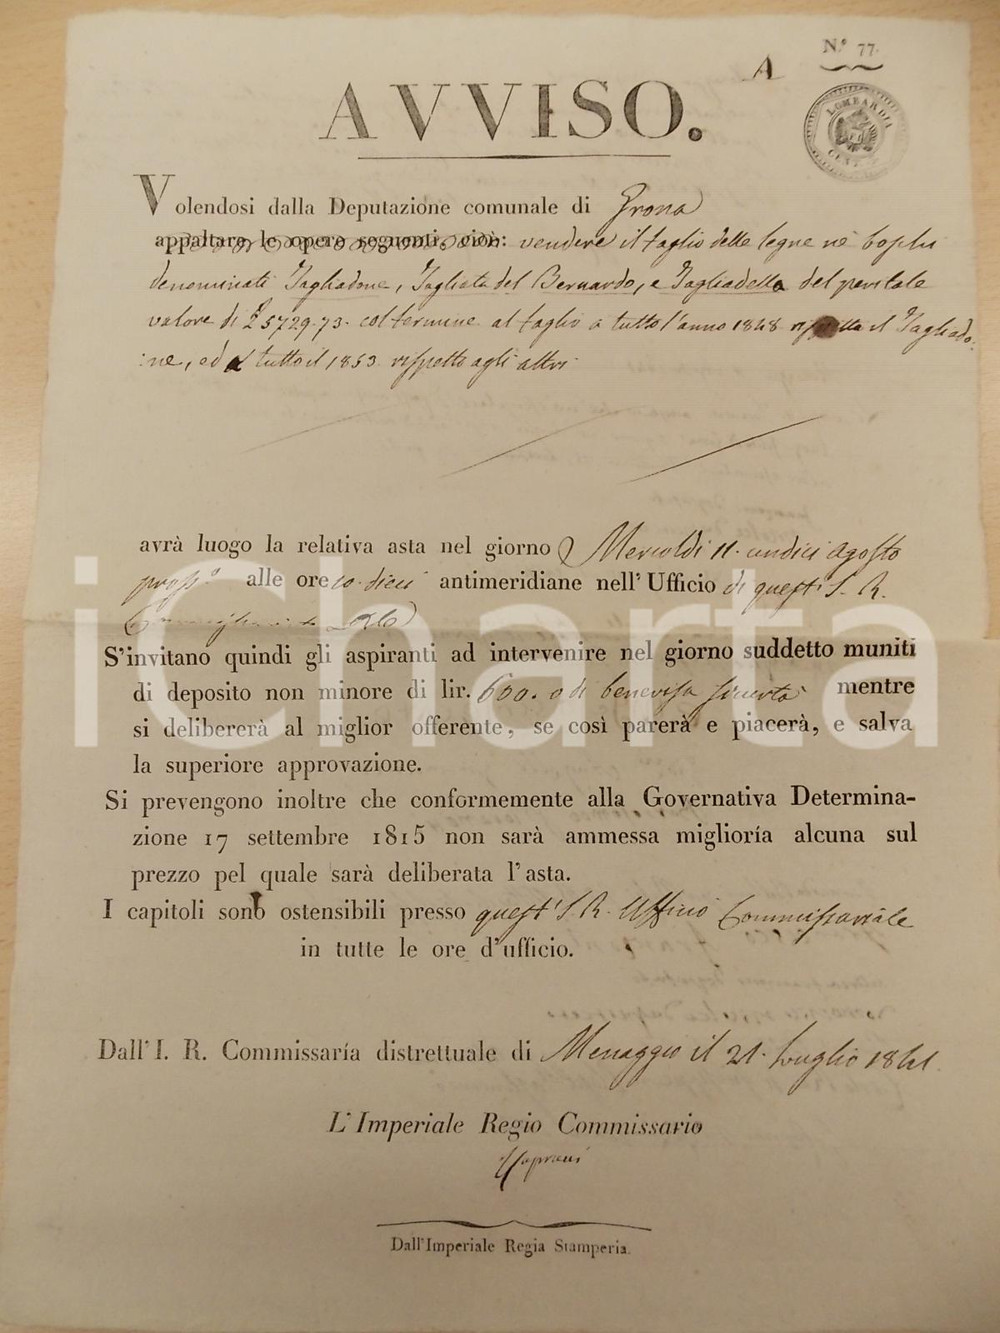 N.º 77.
A
LOMBARDIA
CENT
AVVISO.
Volendosi dalla Deputazione comunale di Grona
appaltare le opere seguenti, cioè: vendere il taglio delle legne ne' boschi
denominati Tagliadone, Tagliata del Bernardo, e Tagliadella del peritale
valore di £ 5729.73. col termine al taglio a tutto l'anno 1848 rispetto il Tagliado
:ne, ed a tutto il 1853 rispetto agli altri
avrà luogo la relativa asta nel giorno di Mercoldì 11. undici agosto
pross.º alle ore 10 dieci antimeridiane nell' Ufficio di quest' I. R.
S'invitano quindi gli aspiranti ad intervenire nel giorno suddetto muniti
di deposito non minore di lir. 600. o di benevisa sicurtà mentre
si delibererà al miglior offerente, se così parerà e piacerà, e salva
la superiore approvazione.
Si prevengono inoltre che conformemente alla Governativa Determina-
zione 17 settembre 1815 non sarà ammessa miglioría alcuna sul
prezzo pel quale sarà deliberata l'asta.
I capitoli sono ostensibili presso quest' I. R. Ufficio Commissariale
in tutte le ore d'ufficio.
Dall' I. R. Commissaría distrettuale di Menaggio il 21. Luglio 1841.
L'Imperiale Regio Commissario
Dall'Imperiale Regia Stamperia.
iCharta